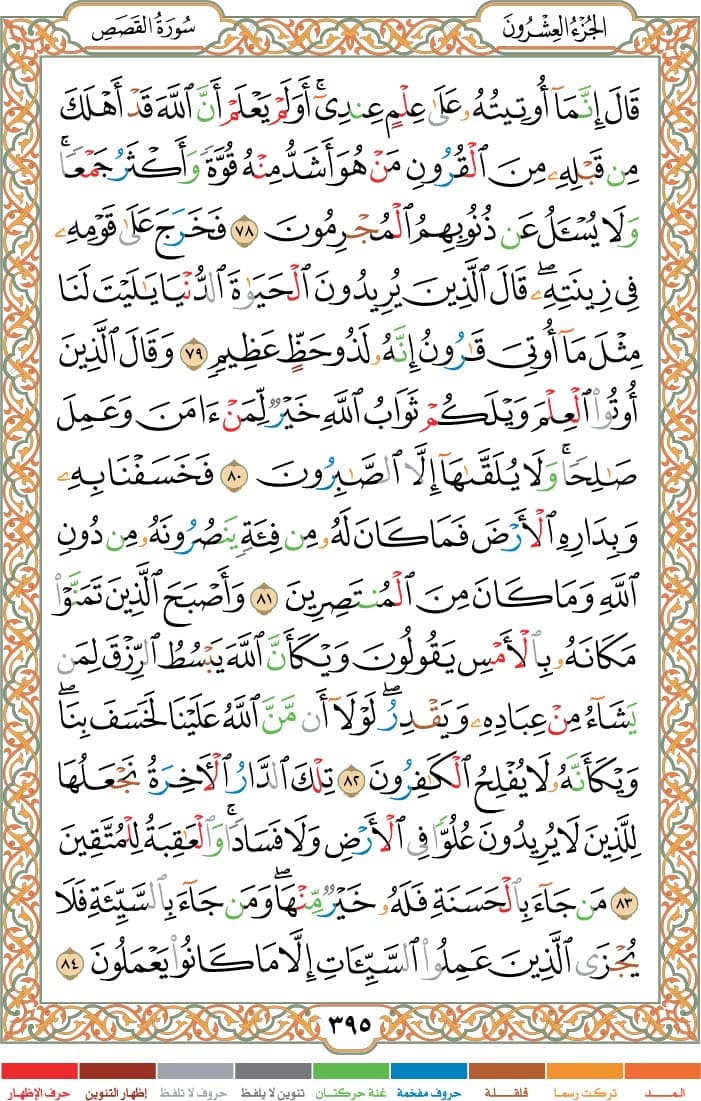 الجُزْءُ العِشْرُونَ
سُورَةُ القَصَصِ
قَالَ إِنَّمَآ أُوتِيتُهُۥ عَلَىٰ عِلْمٍ عِندِىٓۚ أَوَلَمْ يَعْلَمْ أَنَّ ٱللَّهَ قَدْ أَهْلَكَ
مِن قَبْلِهِۦ مِنَ ٱلْقُرُونِ مَنْ هُوَ أَشَدُّ مِنْهُ قُوَّةً وَأَكْثَرُ جَمْعًاۚ
وَلَا يُسْـَٔلُ عَن ذُنُوبِهِمُ ٱلْمُجْرِمُونَ ٧٨ فَخَرَجَ عَلَىٰ قَوْمِهِۦ
فِى زِينَتِهِۦۖ قَالَ ٱلَّذِينَ يُرِيدُونَ ٱلْحَيَوٰةَ ٱلدُّنْيَا يَـٰلَيْتَ لَنَا
مِثْلَ مَآ أُوتِىَ قَـٰرُونُ إِنَّهُۥ لَذُو حَظٍّ عَظِيمٍ ٧٩ وَقَالَ ٱلَّذِينَ
أُوتُوا۟ ٱلْعِلْمَ وَيْلَكُمْ ثَوَابُ ٱللَّهِ خَيْرٌ لِّمَنْ ءَامَنَ وَعَمِلَ
صَـٰلِحًاۚ وَلَا يُلَقَّىٰهَآ إِلَّا ٱلصَّـٰبِرُونَ ٨٠ فَخَسَفْنَا بِهِۦ
وَبِدَارِهِ ٱلْأَرْضَ فَمَا كَانَ لَهُۥ مِن فِئَةٍ يَنصُرُونَهُۥ مِن دُونِ
ٱللَّهِ وَمَا كَانَ مِنَ ٱلْمُنتَصِرِينَ ٨١ وَأَصْبَحَ ٱلَّذِينَ تَمَنَّوْا۟
مَكَانَهُۥ بِٱلْأَمْسِ يَقُولُونَ وَيْكَأَنَّ ٱللَّهَ يَبْسُطُ ٱلرِّزْقَ لِمَن
يَشَآءُ مِنْ عِبَادِهِۦ وَيَقْدِرُۖ لَوْلَآ أَن مَّنَّ ٱللَّهُ عَلَيْنَا لَخَسَفَ بِنَاۖ
وَيْكَأَنَّهُۥ لَا يُفْلِحُ ٱلْكَـٰفِرُونَ ٨٢ تِلْكَ ٱلدَّارُ ٱلْـَٔاخِرَةُ نَجْعَلُهَا
لِلَّذِينَ لَا يُرِيدُونَ عُلُوًّا فِى ٱلْأَرْضِ وَلَا فَسَادًاۚ وَٱلْعَـٰقِبَةُ لِلْمُتَّقِينَ
٨٣ مَن جَآءَ بِٱلْحَسَنَةِ فَلَهُۥ خَيْرٌ مِّنْهَاۖ وَمَن جَآءَ بِٱلسَّيِّئَةِ فَلَا
يُجْزَى ٱلَّذِينَ عَمِلُوا۟ ٱلسَّيِّـَٔاتِ إِلَّا مَا كَانُوا۟ يَعْمَلُونَ ٨٤
٣٩٥
المـــد تركت رسما قلقـلة حروف مفخمة غنة حركتان تنوين لا يلفظ حروف لا تلفظ إظهار التنوين حرف الإظهار